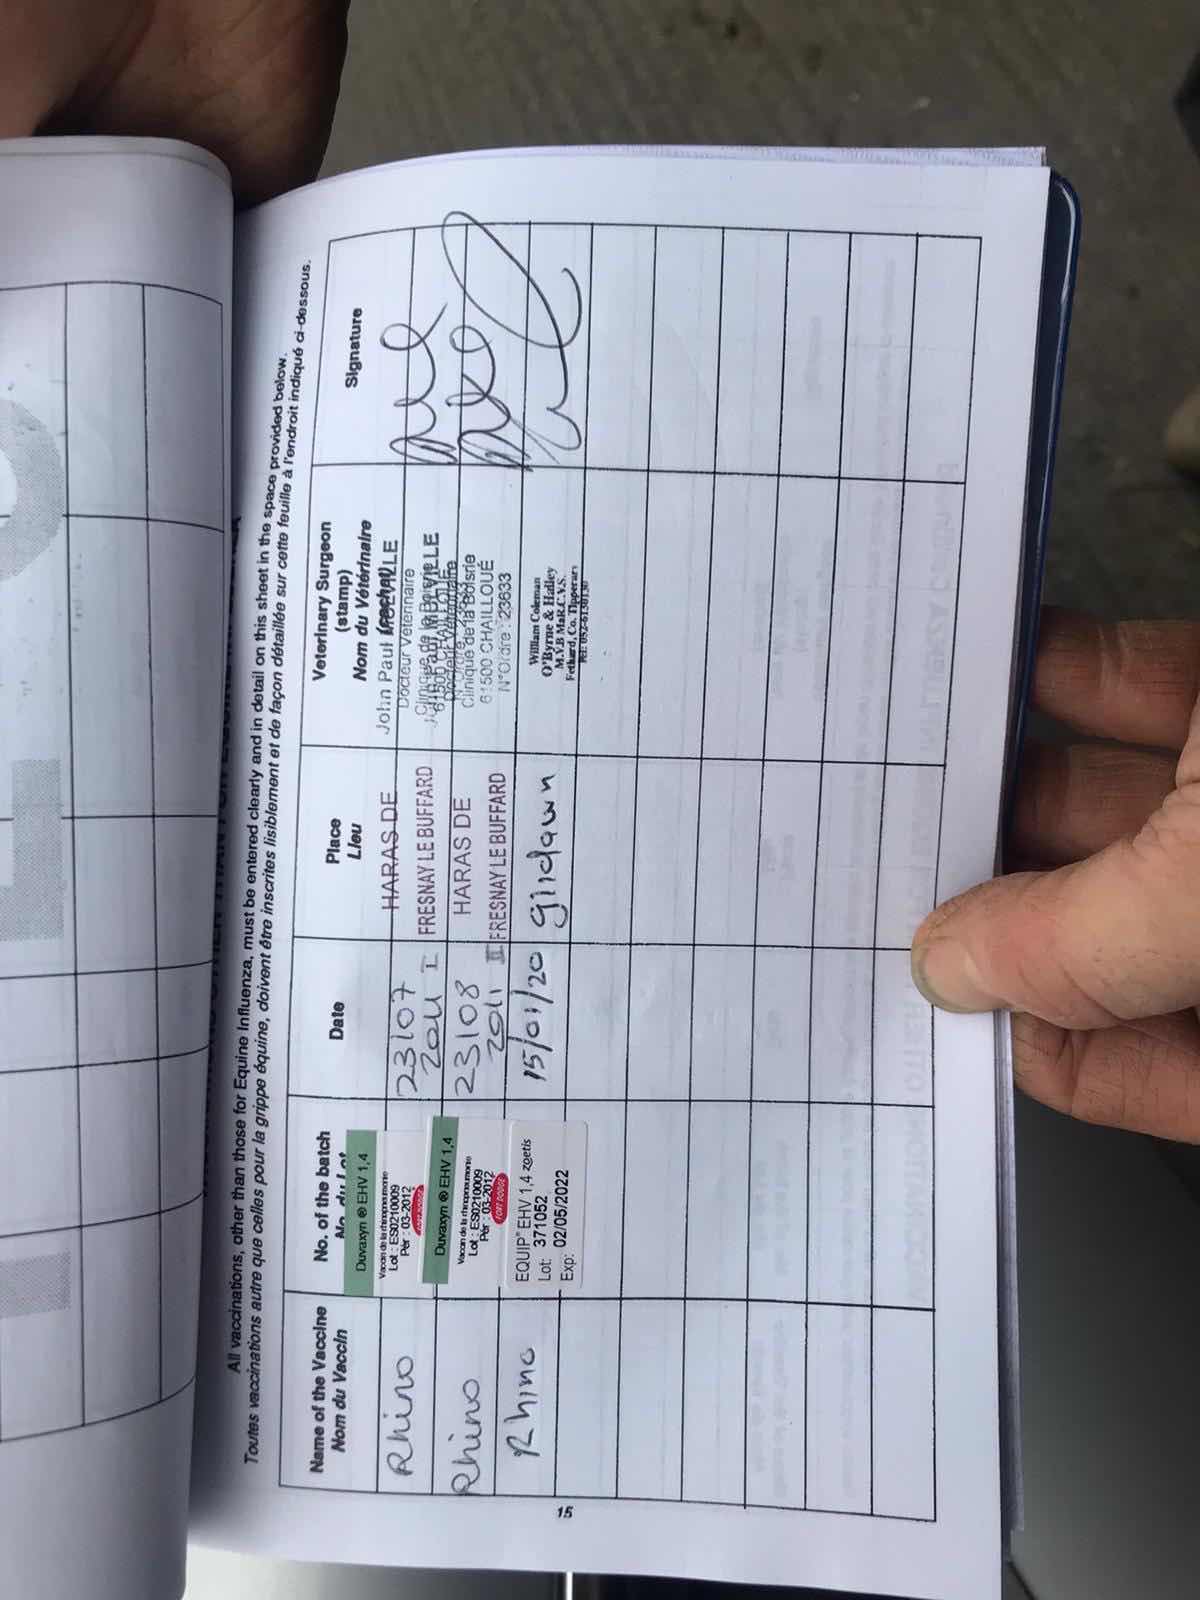 All vaccinations, other than those for Equine Influenza, must be entered clearly and in detail on this sheet in the space provided below.
Toutes vaccinations autre que celles pour la grippe équine, doivent être inscrites lisiblement et de façon détaillée sur cette feuille à l'endroit indiqué ci-dessous.
Name of the Vaccine
Nom du Vaccin
No. of the batch
No. du Lot
Date
Place
Lieu
Veterinary Surgeon
(stamp)
Nom du Vétérinaire
Signature
Rhino
Duvaxyn ® EHV 1,4
Vaccin de la rhinopneumonie
Lot : ES0210009
Pér : 03-2012
FORT DODGE
23/07
2011 I
HARAS DE
FRESNAY LE BUFFARD
John Paul
Docteur Vétérinaire
Rhino
Duvaxyn ® EHV 1,4
Vaccin de la rhinopneumonie
Lot : ES0210009
Pér : 03-2012
FORT DODGE
23/08
2011 II
HARAS DE
FRESNAY LE BUFFARD
Docteur Vétérinaire
Clinique de la Boisrie
61500 CHAILLOUÉ
N°Ordre : 23633
Rhino
EQUIP® EHV 1,4 zoetis
Lot: 371052
Exp: 02/05/2022
15/01/20
Glidawn
William Coleman
O'Byrne & Halley
M.V.B MaR.C.V.S.
Fethard, Co. Tipperary
15